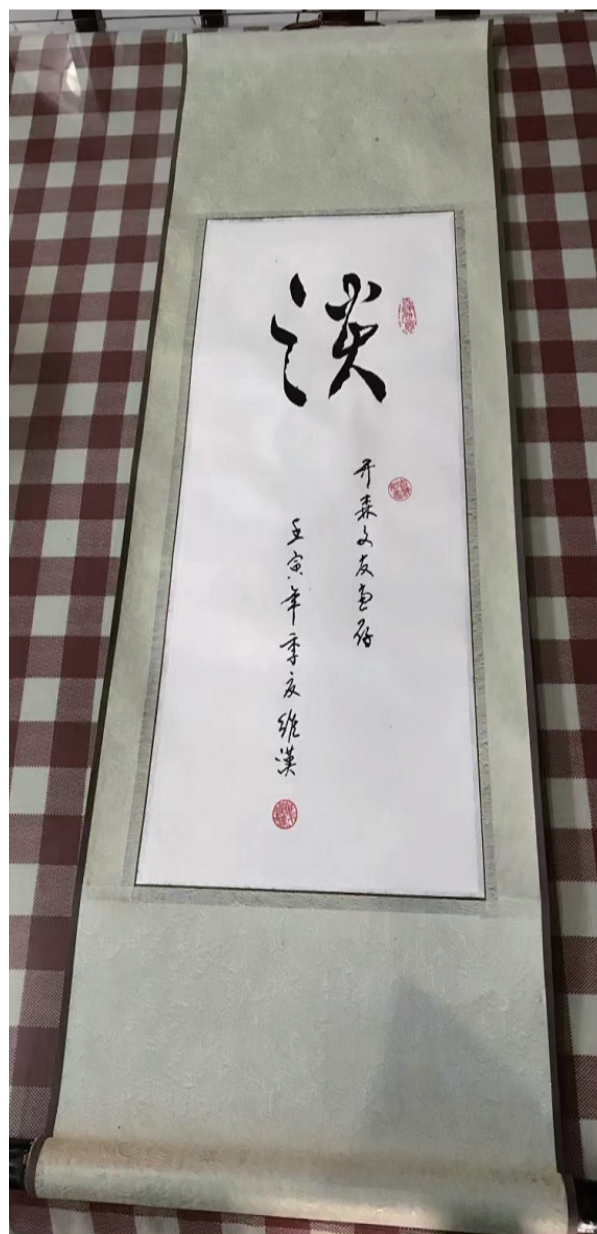 淡
开森文友惠存
壬寅年季夏維漢